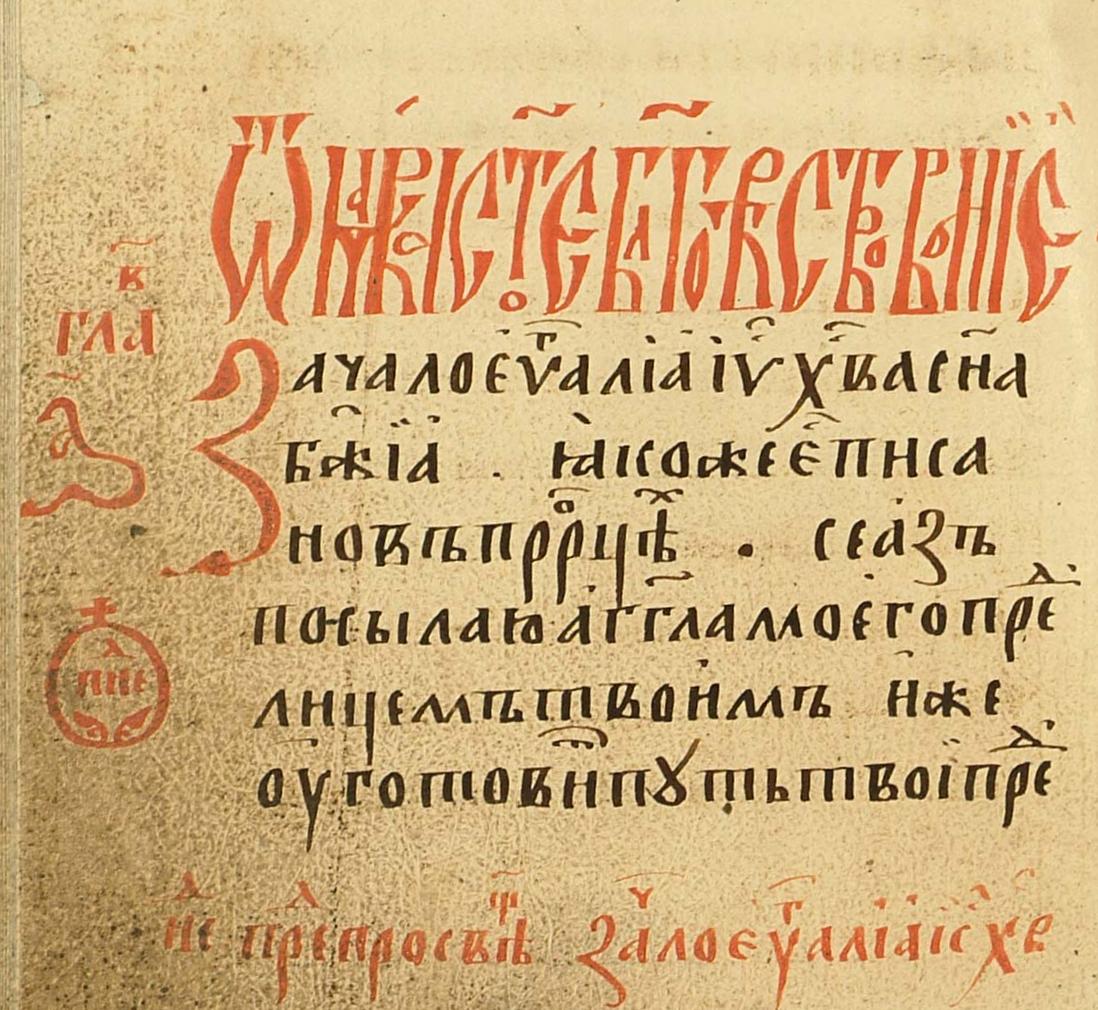 Ѿ ма́рка ст҃ое бл҃говѣствованїе
в҃
гла
а҃
Зачало еѵⷢ҇алїа іѵ҃ х҃ва сн҃а
бж҃їа . ꙗкоже є писа
но въ прⷪ҇рцѣⷯ . се азъ
посылаю агг҃ла моего преⷣ
лицемъ твоимъ иже
оуготовиⷮ пꙋть твоі преⷣ
пнеⷣ
неⷣ преⷣ просвѣⷳ заⷱ҇ло еѵⷢ҇алїа іс хв